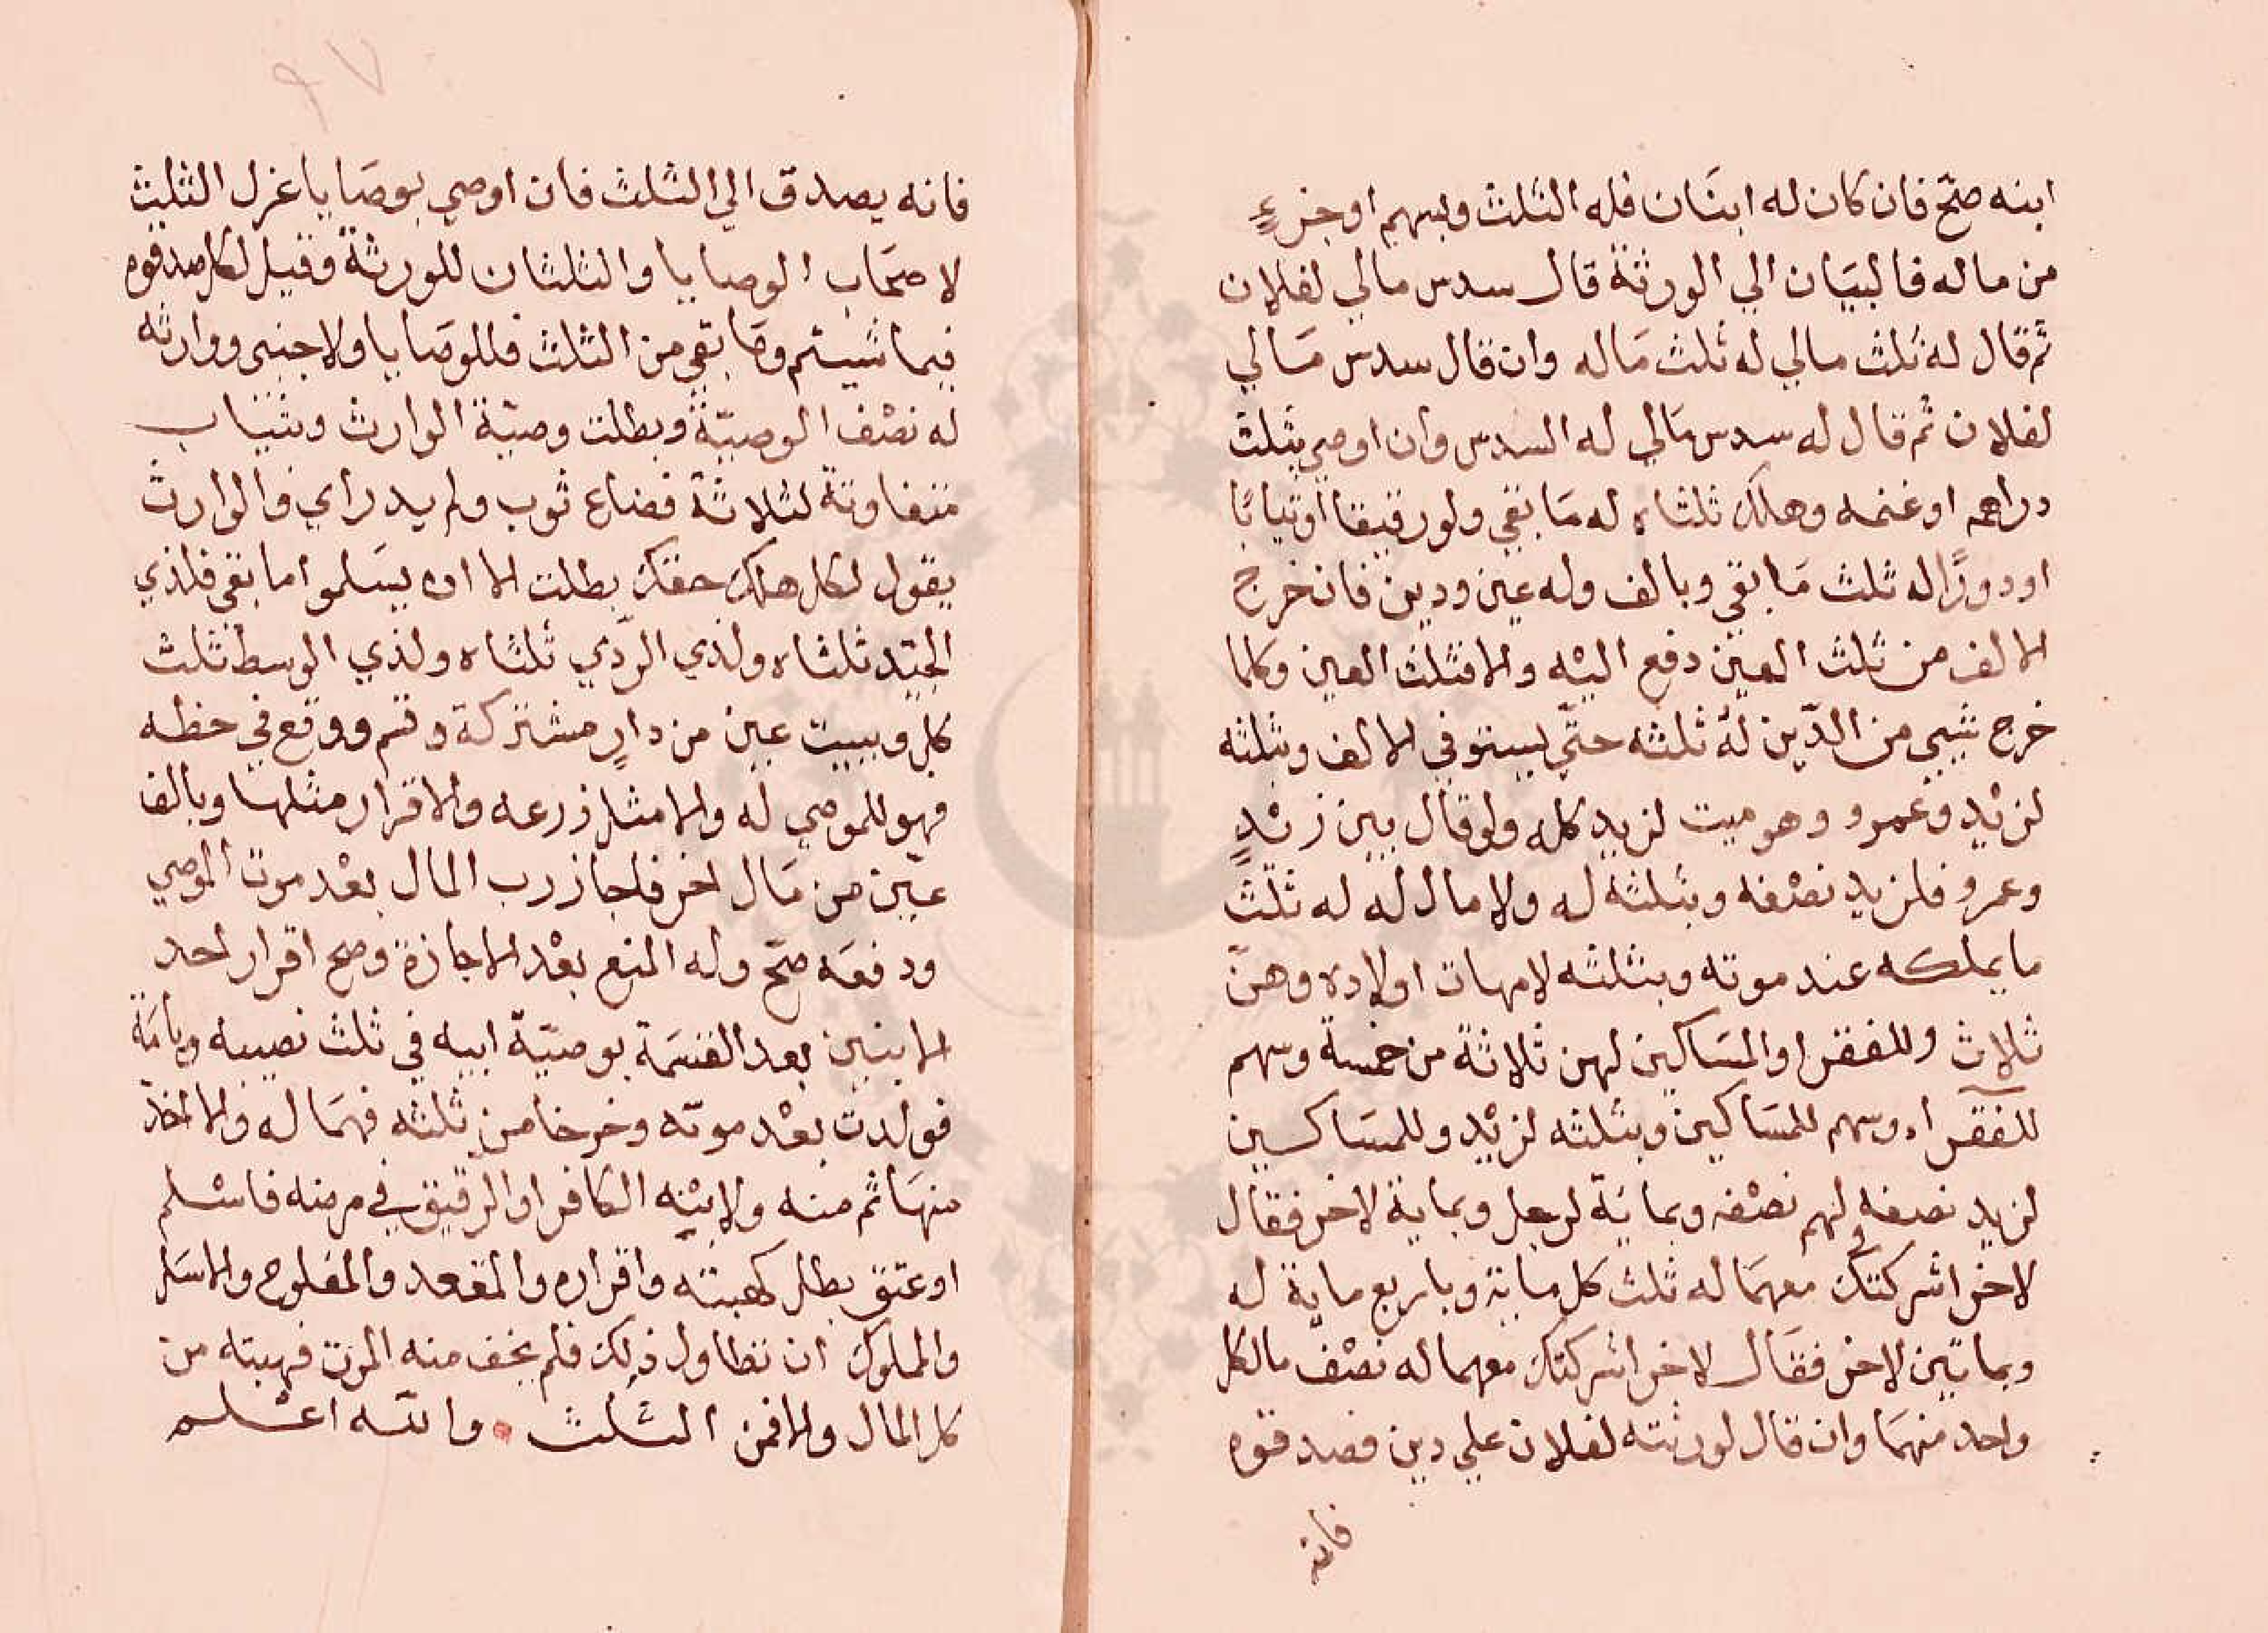 ابنه صحّ فان كان له ابنان فله الثلث وبسهم او جزءٍ
من ماله فالبيان الي الورثة قال سدس مالي لفلان
ثم قال له ثلث مالي له ثلث ماله وان قال سدس مالي
لفلان ثم قال له سدس مالي له السدس وان اوصي بثلث
دراهمه او غنمه وهلك ثلثاه له ما بقي ولو رقيقا او ثيابًا
او دورًا له ثلث ما بقي وبالف وله عين ودين فان خرج
الالف من ثلث العين دفع اليه والا فثلث العين وكلما
خرج شيي من الدّين له ثلثه حتّي يستوفي الالف وبثلثه
لزيد وعمرو وهو ميت لزيد كله ولو قال بين زيدٍ
وعمرو فلزيد نصفه وبثلثه له ولا مال له له ثلث
ما يملكه عند موته وبثلثه لامهات اولاده وهنّ
ثلاث وللفقرا والمساكين لهن ثلاثة من خمسة وسهم
للفقراء وسهم للمساكين وبثلثه لزيد وللمساكين
لزيد نصفه ولهم نصفه وبماية لرجل وبماية لاخر فقال
لاخر اشركتك معهما له ثلث كل ماية وباربع ماية له
وبماتين لاخر فقال لاخر اشركتك معهما له نصف مالكل
واحد منهما وان قال لورثته لفلان علي دين فصدقوه
فانه
فانه يصدق الي الثلث فان اوصي بوصايا عزل الثلث
لاصحاب الوصايا والثلثان للورثة وقيل لكل صدقوه
فيما شيتم وما بقي من الثلث فللوصايا ولاجنبي ووارثه
له نصف الوصيّة وبطلت وصيّة الوارث وبثياب
متفاوتة لثلاثة فضاع ثوب ولم يدر اي والوارث
يقول لكل هلك حقك بطلت الا ان يسلموا ما بقي فلذي
الجيّد ثلثاه ولذي الرّدي ثلثاه ولذي الوسط ثلث
كل وببيت عين من دارٍ مشتركة وقسم ووقع في حظه
فهو للموصي له والا مثل ذرعه والاقرار مثلها وبالف
عيّن من مال اخر فاجاز رب المال بعد موت الموصي
ودفعه صحّ وله المنع بعد الاجازة وصح اقرار احد
الابنين بعد القسمة بوصيّة ابيه في ثلث نصيبه وبامة
فولدت بعد موته وخرجا من ثلثه فهما له والا اخذ
منها ثم منه ولابنه الكافر او الرقيق في مرضه فاسلم
او عتق بطل كهبته واقراره والمقعد والمفلوج والاسل
والملوك ان تطاول ذلك فلم يخف منه الموت فهبته من
كل المال والا فمن الثلث والله اعلم